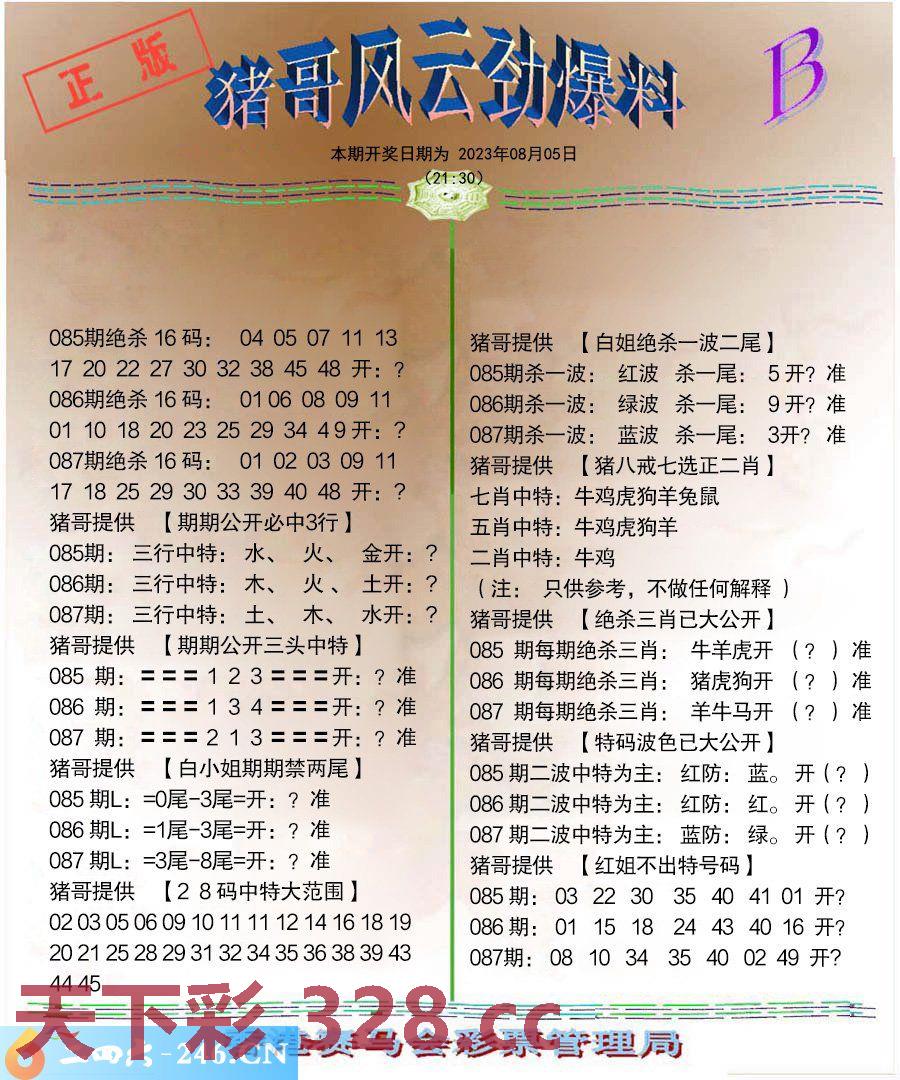 正版
猪哥风云劲爆料
B
本期开奖日期为 2023年08月05日
(21:30)
085期绝杀 16 码： 04 05 07 11 13
17 20 22 27 30 32 38 45 48 开：?
086期绝杀 16 码： 01 06 08 09 11
01 10 18 20 23 25 29 34 4 9 开：?
087期绝杀 16 码： 01 02 03 09 11
17 18 25 29 30 33 39 40 48 开：?
猪哥提供 【期期公开必中3行】
085期： 三行中特： 水、 火、 金开：?
086期： 三行中特： 木、 火、 土开：?
087期： 三行中特： 土、 木、 水开：?
猪哥提供 【期期公开三头中特】
085 期：＝＝＝ 1 2 3 ＝＝＝开：? 准
086 期：＝＝＝ 1 3 4 ＝＝＝开：? 准
087 期：＝＝＝ 2 1 3 ＝＝＝开：? 准
猪哥提供 【白小姐期期禁两尾】
085 期L：=0尾-3尾=开：? 准
086 期L：=1尾-3尾=开：? 准
087 期L：=3尾-8尾=开：? 准
猪哥提供 【2 8 码中特大范围】
02 03 05 06 09 10 11 11 12 14 16 18 19
20 21 25 28 29 31 32 34 35 36 38 39 43
44 45
猪哥提供 【白姐绝杀一波二尾】
085期杀一波： 红波 杀一尾： 5 开? 准
086期杀一波： 绿波 杀一尾： 9 开? 准
087期杀一波： 蓝波 杀一尾： 3开? 准
猪哥提供 【猪八戒七选正二肖】
七肖中特：牛鸡虎狗羊兔鼠
五肖中特：牛鸡虎狗羊
二肖中特：牛鸡
（注： 只供参考，不做任何解释 ）
猪哥提供 【绝杀三肖已大公开】
085 期每期绝杀三肖： 牛羊虎开 （? ）准
086 期每期绝杀三肖： 猪虎狗开 （? ）准
087 期每期绝杀三肖： 羊牛马开 （? ）准
猪哥提供 【特码波色已大公开】
085 期二波中特为主： 红防： 蓝。 开（? ）
086 期二波中特为主： 红防： 红。 开（? ）
087 期二波中特为主： 蓝防： 绿。 开（? ）
猪哥提供 【红姐不出特号码】
085 期： 03 22 30 35 40 41 01 开?
086 期： 01 15 18 24 43 40 16 开?
087期： 08 10 34 35 40 02 49 开?
天下彩 328.cc
-246.CN
赛马会彩票管理局